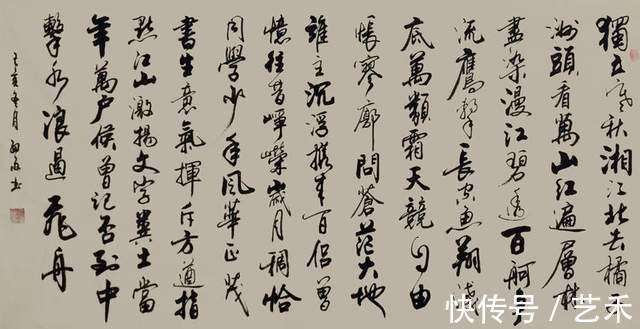 獨立寒秋湘江北去橘子
洲頭看萬山紅遍層林
盡染漫江碧透百舸争
流鷹擊長空魚翔淺
底萬類霜天競自由
悵寥廓問蒼茫大地
誰主沉浮攜來百侶曾
憶往昔崢嶸歲月稠恰
同學少年風華正茂
書生意氣揮斥方遒指
點江山激揚文字糞土當
年萬户侯曾記否到中
擊水浪遏飛舟
己亥 月 書
快传号／艺禾